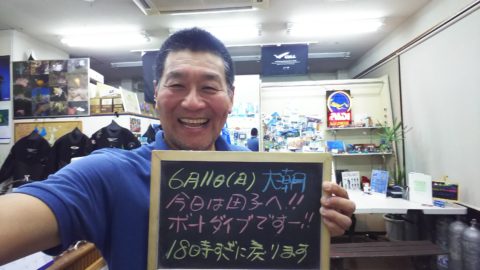 6月11日(月) 大潮
今日は田子へ!!
ボートダイブですー!!
18時すぎに戻ります
PADI